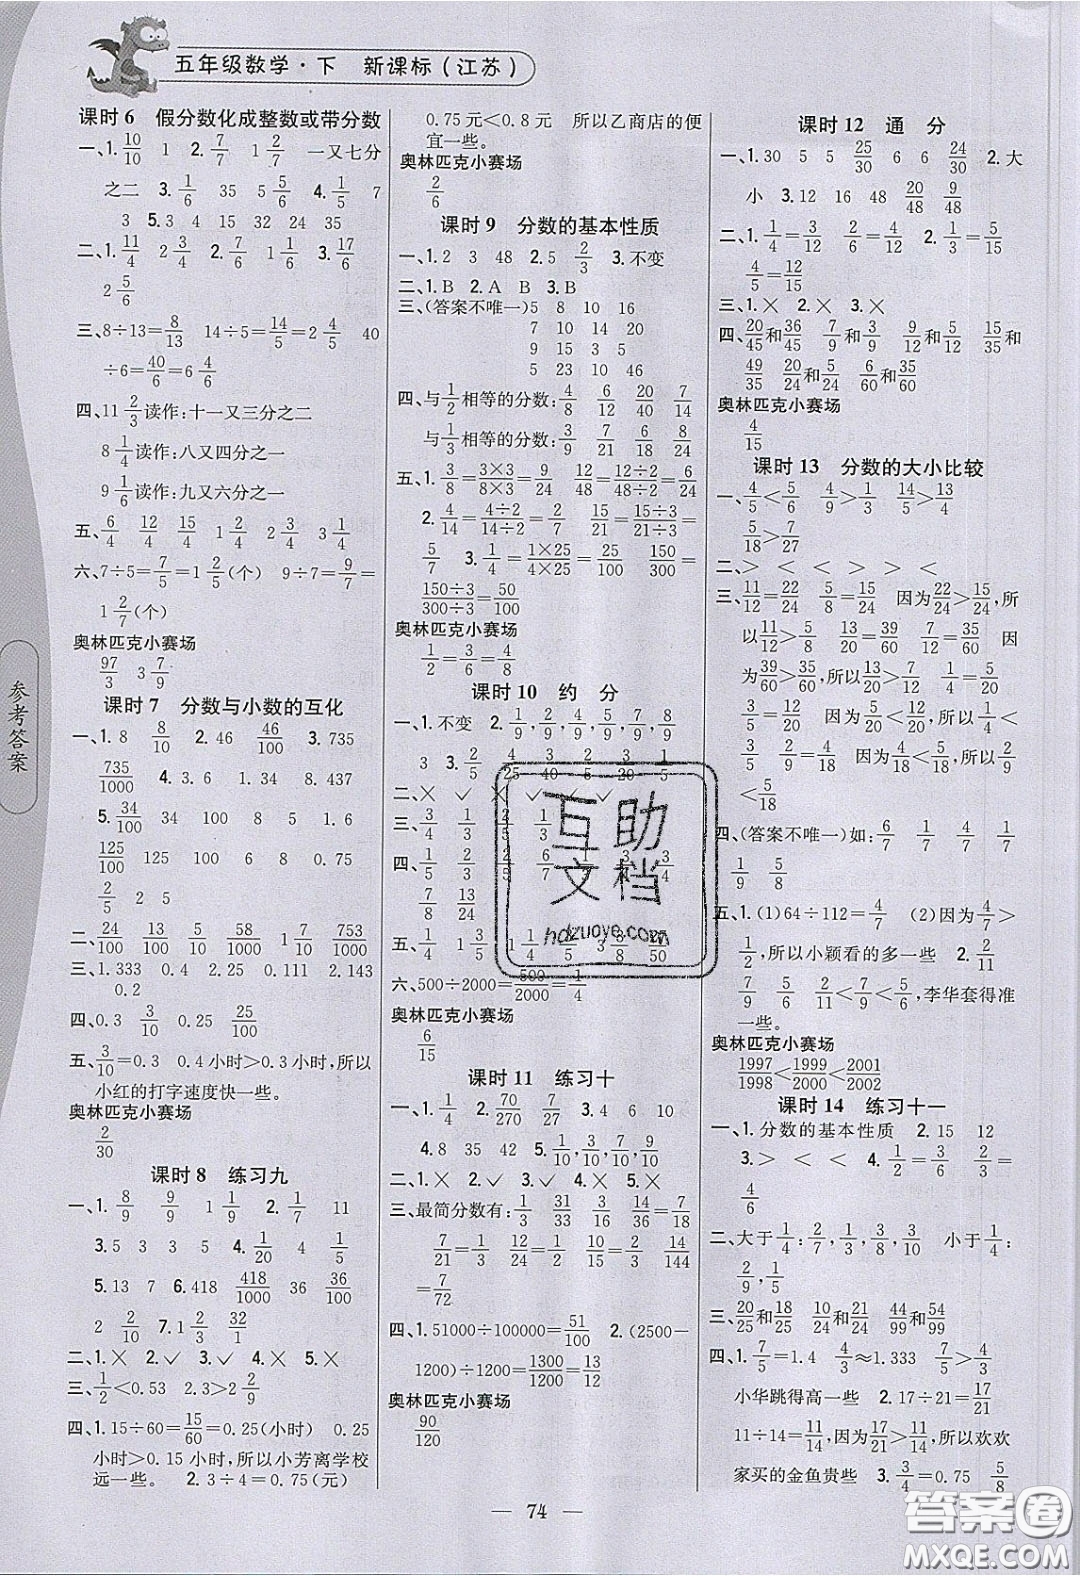 五年级数学·下 新课标(江苏)
课时6 假分数化成整数或带分数
一、1. 10/10 1 2. 7/7 1 2/7 一又七分
之二 3. 1/6 35 5 5/6 4. 1/5 7
3 5. 3 4 15 32 24 35
二、1. 11/4 2 3/4 2. 7/6 1 1/6 3. 17/6
2 5/6
三、8÷13=8/13 14÷5=14/5=2 4/5 40
÷6=40/6=6 4/6
四、11 2/3 读作:十一又三分之二
8 1/4 读作:八又四分之一
9 1/6 读作:九又六分之一
五、6/4 12/4 15/4 1 2/4 2 3/4 3 1/4
六、7÷5=7/5=1 2/5(个) 9÷7=9/7=
1 2/7(个)
奥林匹克小赛场
97/3 3 7/9
课时7 分数与小数的互化
一、1. 8 8/10 2. 46 46/100 3. 735
735/1000 4. 3.6 1.34 8.437
5. 34/100 34 100 8 5 1.6
125/100 125 100 125/1000 125 1000
2/5 5 2
二、24/100 13/100 5/10 58/1000 1 7/10 753/100
三、1. 333 0.4 2. 25 0.091 3. 25
0.2
四、0.3 3/10 0.25 25/100
五、3/10=0.3 0.4小时>0.3小时,所以
小红的打字速度快一些。
奥林匹克小赛场
2/30
课时8 练习九
一、1. 8/9 9/9 1 1/9 2. 1/7 11
3. 5 3 3 5 4. 1/20 4 1/5
5. 13 7 6. 418 418/1000 36 36/100
2 2/10 7. 1 2/3 32/1
二、1.× 2.✓ 3.✓ 4.× 5.×
三、1/2<0.53 2.2<2 2/9
四、1. 15÷60=15/60=0.25(小时) 0.25
小时>0.15小时,所以小芳离学校
远一些。 2. 3÷4=0.75(元)
0.75元<0.8元 所以乙商店的便
宜一些。
奥林匹克小赛场
2/6
课时9 分数的基本性质
一、1. 2 3 48 2. 5 2/3 3. 不变
二、1. B 2. A B 3. B
三、(答案不唯一)5 8 10 16
7 10 14 20
9 15 3 5
5 23 10 46
四、与1/2相等的分数:4/8 6/12 20/40 7/14
与1/3相等的分数:3/9 7/21 6/18 8/24
五、1. 3/8=(3×3)/(8×3)=9/24 12/48=(12÷2)/(48÷2)=6/24
2. 4/14=(4÷2)/(14÷2)=2/7 15/21=(15÷3)/(21÷3)=
5/7 3. 1/4=(1×25)/(4×25)=25/100 150/300=
(150÷3)/(300÷3)=50/100
奥林匹克小赛场
1/2=3/6=4/8
课时10 约 分
一、1. 不变 2. 1/9,2/9,4/9,5/9,7/9,8/9
3 3. 2/5 4/25 3/40 2/5 3/20 1/5
二、× ✓ × ✓ ✓ ✓
三、3/4 1/3 2/5 1/3
四、1/5 2/3 2/5 6/7 1/3 3/4 3/4
7/8 13/24
五、1/4 1 3/5 1 1/4 2/5 3 5/8 27/50
六、500÷2000=500/2000=1/4
奥林匹克小赛场
6/15
课时11 练习十
一、1. 1/4 2. 70/270 7/27 3. 4 6 10
4. 8 35 42 5. 1/10,3/10,7/10,9/10
二、1.× 2.✓ 3.✓ 4.× 5.×
三、最简分数有:1/3 31/33 3/16 7/18
7/21=1/3 12/24=1/2 10/15=2/3 14/144
=7/72
四、1. 51000÷100000=51/100 2. (2500-
1200)÷1200=1300/1200=13/12
奥林匹克小赛场
90/120
课时12 通 分
一、1. 30 5 5 25/30 6 6 24/30 2. 大
小 3. 12 16 48 20/48 9/48
二、1. 1/4=3/12 2/4=6/12 2. 1/3=5/15
4/5=12/15
三、1.× 2.× 3.×
四、20/45和36/45 7/9和3/9 9/12和5/12 15/35和
49/35 20/24和5/24 21/60和8/60
奥林匹克小赛场
4/15
课时13 分数的大小比较
一、4/5<5/6 4/9>1/3 14/5>13/4
5/18>7/27
二、> < > < > <
三、11/12=22/24 5/8=15/24 因为22/24>15/24,所
以11/12>5/8 13/20=39/60 7/12=35/60 因
为39/60>35/60,所以13/20>7/12 1/4=5/20
3/5=12/20 因为5/20<12/20,所以1/4<
3/5 2/9=4/18 因为4/18<5/18,所以2/9
<5/18
四、(答案不唯一)如:6/7 1/7 4/7 1/7
1/9 5/8
五、1. (1)64÷112=4/7 (2)因为4/7>
1/2,所以小颖看的多一些 2. 2/11
7/9 5/6 2/11<7/9<5/6,李华套得准
一些。
奥林匹克小赛场
1997/1998<1999/2000<2001/2002
课时14 练习十一
一、1. 分数的基本性质 2. 15 12
3. > < < 4. 1/2=3/6 2/3=
4/6
二、大于1/4:2/7,1/3,3/8,3/9 小于1/4:
2/9,1/5
三、20/25和18/25 10/24和21/24 44/99和54/99
四、1. 7/5=1.4 4/3≈1.333 7/5>4/3
小华跳得高一些 2. 17÷21=17/21
11÷14=11/14,因为17/21>11/14,所以欢欢
家买的金鱼贵些 3. 3/4=0.75 5/8
参考答案
互助
文档
hdzuoye.com
74
答案圈
MXQE.COM